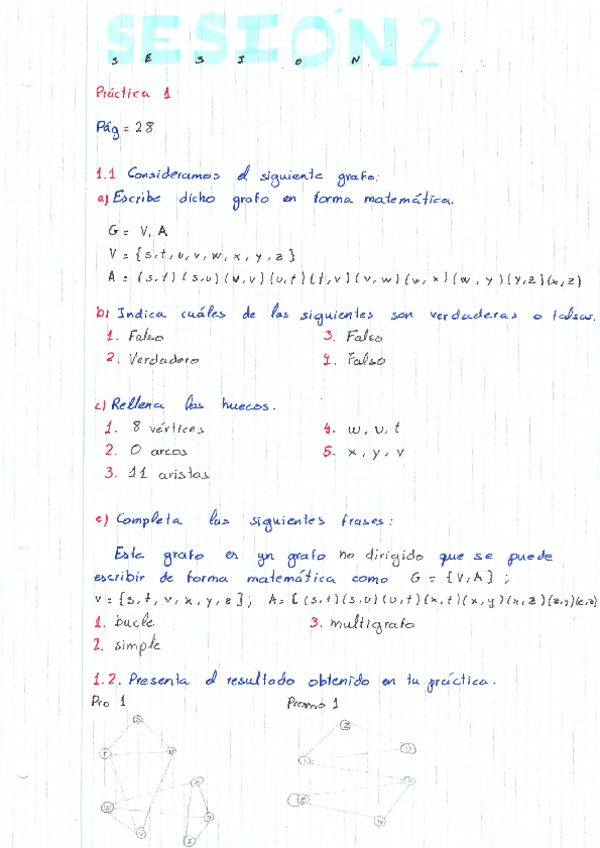 SESIÓN 2
S E S I O N
Práctica 1
Pág = 28
1.1 Consideramos el siguiente grafo:
a) Escribe dicho grafo en forma matemática.
G = V, A
V = {s, t, u, v, w, x, y, z}
A = (s,t) (s,u) (w,v) (u,t) (t,v) (v,w) (w,x) (w,y) (y,z) (x,z)
b) Indica cuáles de las siguientes son verdaderas o falsas.
1. Falso 3. Falso
2. Verdadero 4. Falso
c) Rellena los huecos.
1. 8 vértices 4. w, u, t
2. 0 arcos 5. x, y, v
3. 11 aristas
e) Completa las siguientes frases:
Este grafo es yn grafo no dirigido que se puede
escribir de forma matemática como G = {V,A} ;
V = {s, t, v, x, y, z}; A= { (s,t) (s,u) (u,t) (x,t) (x,y) (x,z) (z,y) (z,z)
1. bucle 3. multigrafo
2. simple
1.2. Presenta el resultado obtenido en tu práctica.
Pro 1 Promo 1